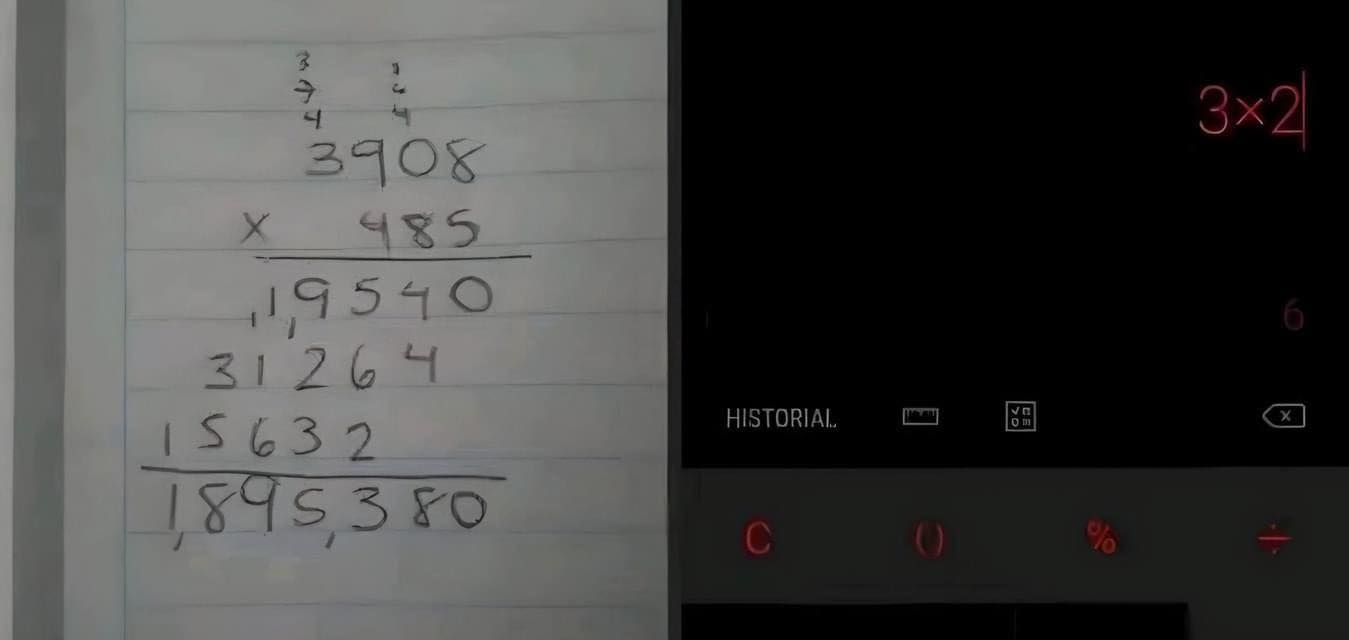 3 1
7 6
4 4
3908
x 485
1,9540
31264
15632
1,895,380
3×2
6
HISTORIAL
C () % ÷